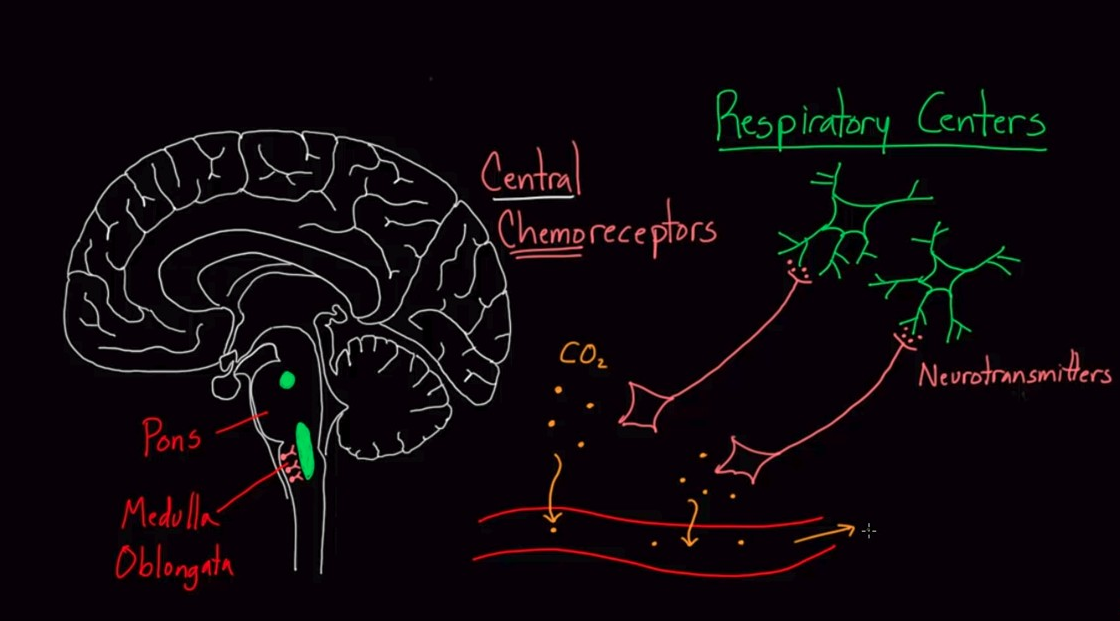 Respiratory Centers
Central
Chemoreceptors
CO₂
Neurotransmitters
Pons
Medulla
Oblongata